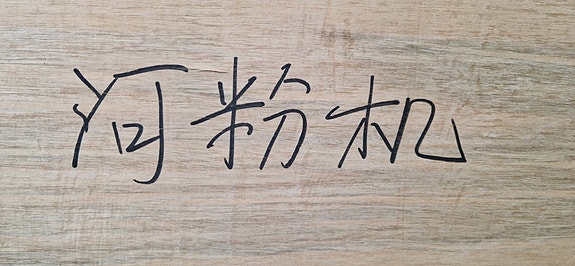 河粉机